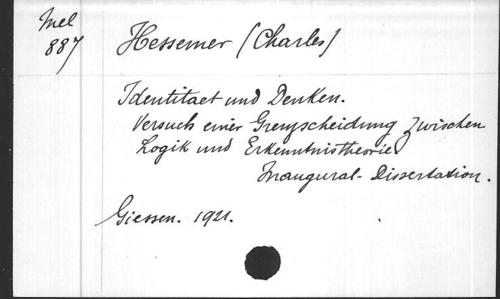 Mel
887
Hessemer (Charles)
Identitaet und Denken.
Versuch einer Grenzscheidung zwischen
Logik und Erkenntnistheorie
Inaugural-Dissertation.
Giessen. 1921.